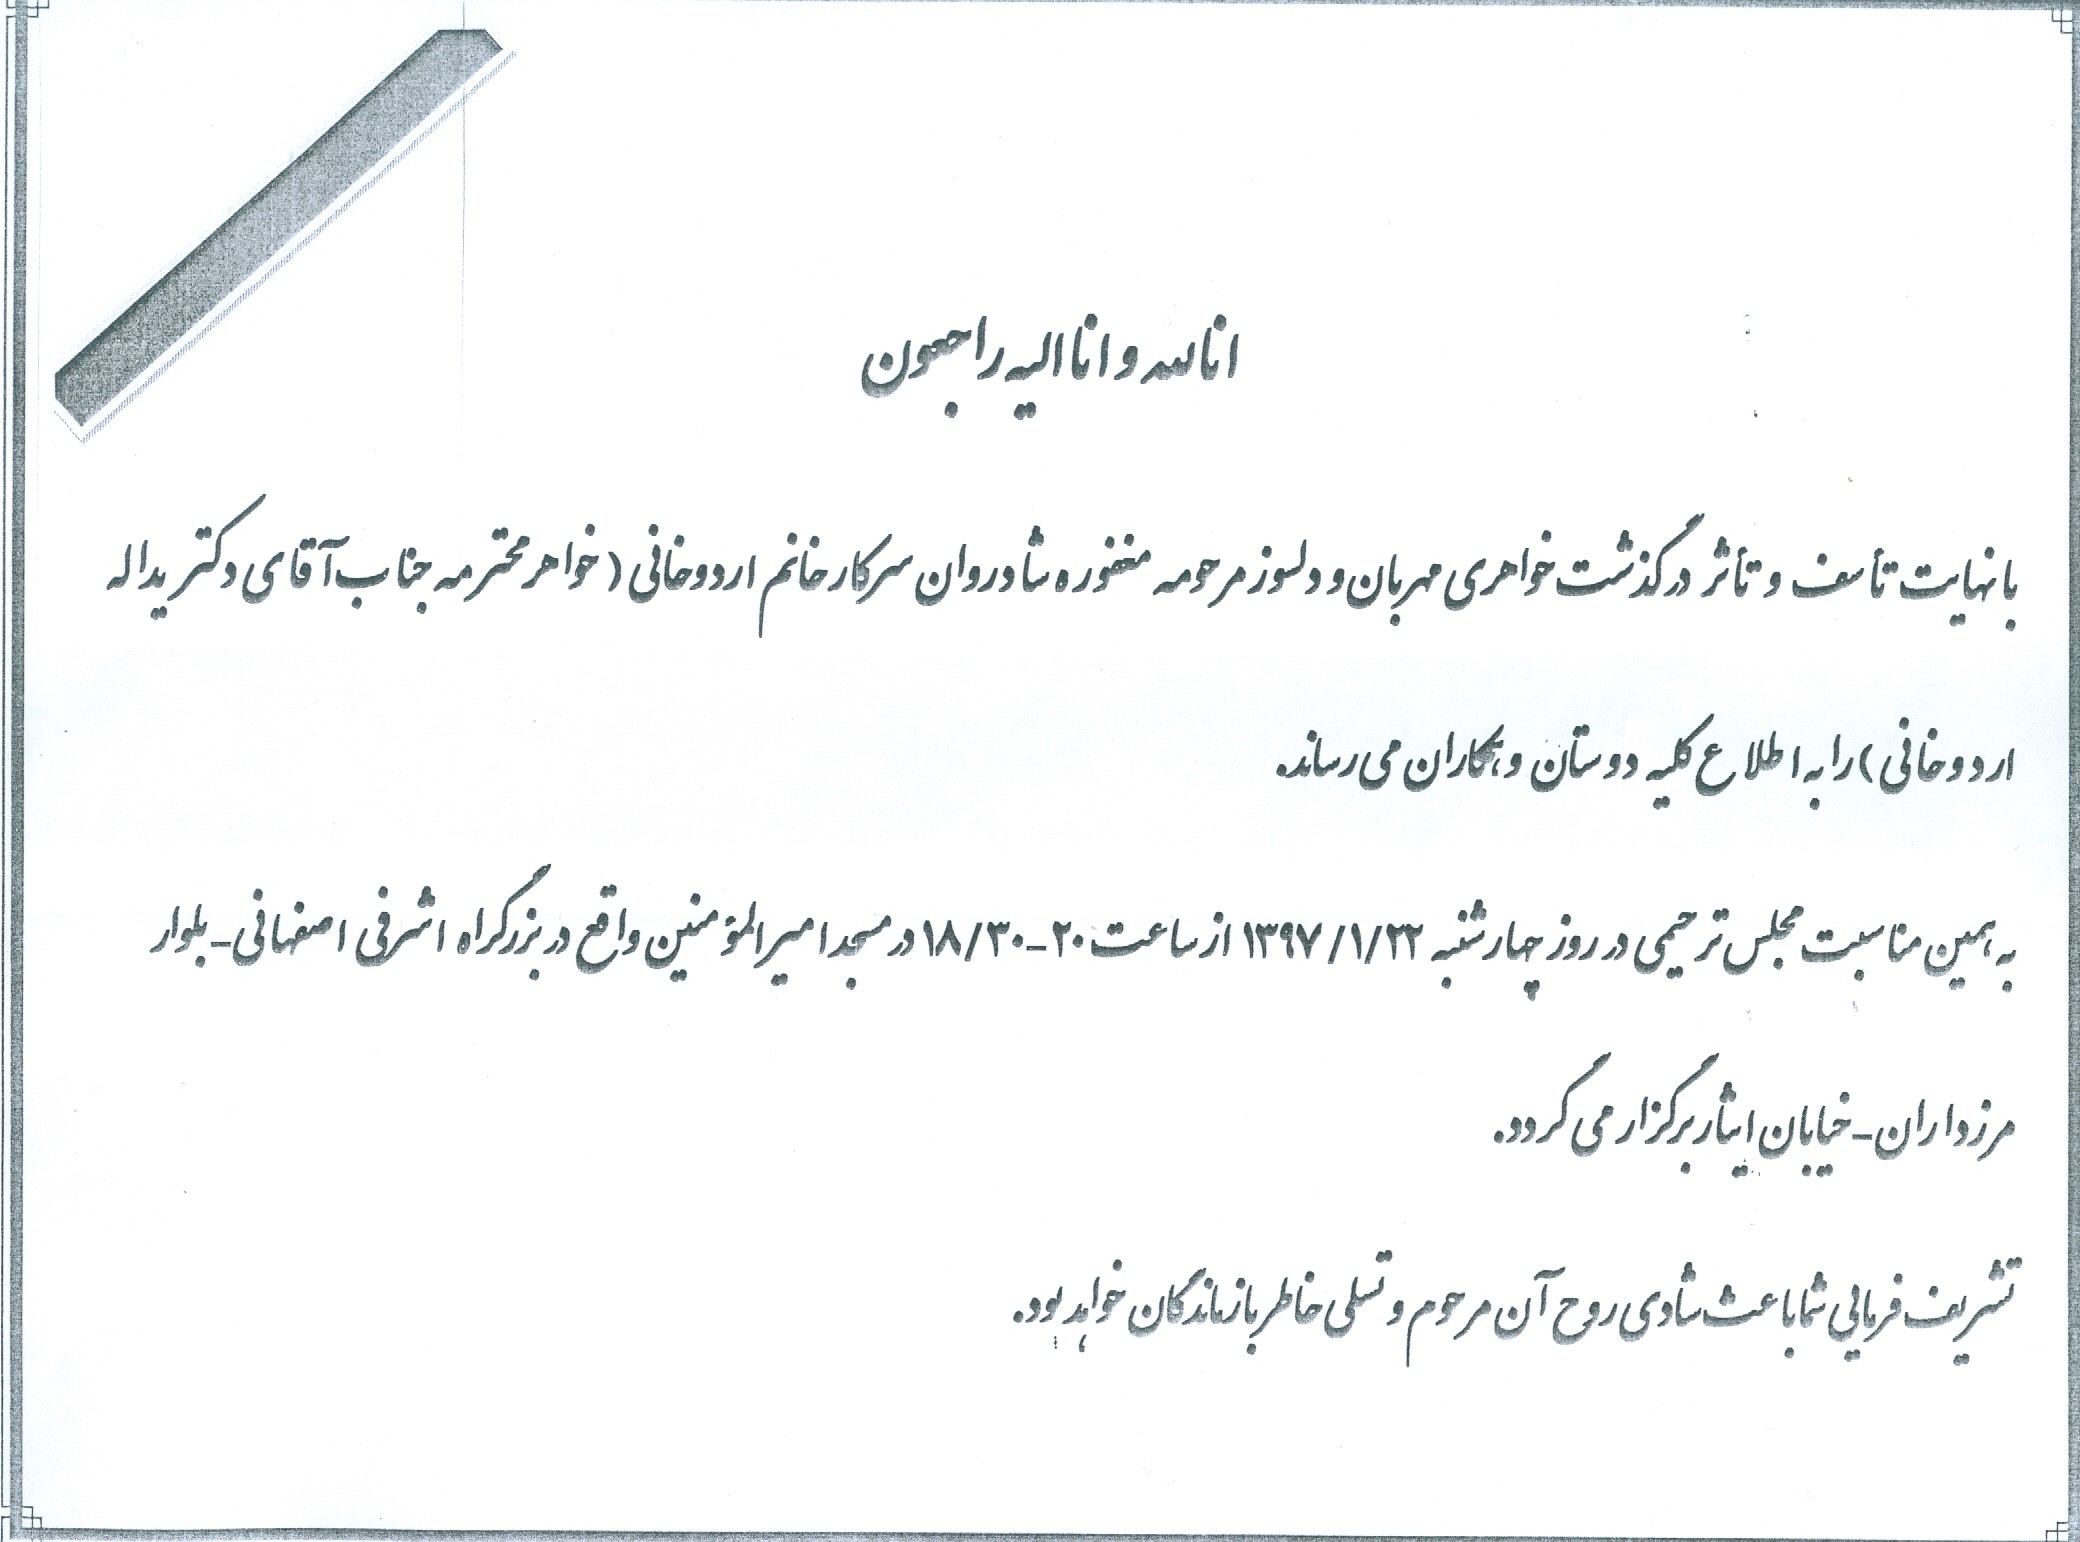 انالله و انا الیه راجعون
با نهایت تأسف و تأثر درگذشت خواهری مهربان و دلسوز مرحومه مغفوره شادروان سرکار خانم اردوخانی ( خواهر محترمه جناب آقای دکتر یداله
اردوخانی ) را به اطلاع کلیه دوستان و همکاران می رساند.
به همین مناسبت مجلس ترحیمی در روز چهارشنبه ۱۳۹۷/۱/۲۲ از ساعت ۲۰-۱۸/۳۰ در مسجد امیرالمؤمنین واقع در بزرگراه اشرفی اصفهانی - بلوار
مرزداران - خیابان ایثار برگزار می گردد.
تشریف فرمایی شما باعث شادی روح آن مرحوم و تسلی خاطر بازماندگان خواهد بود.